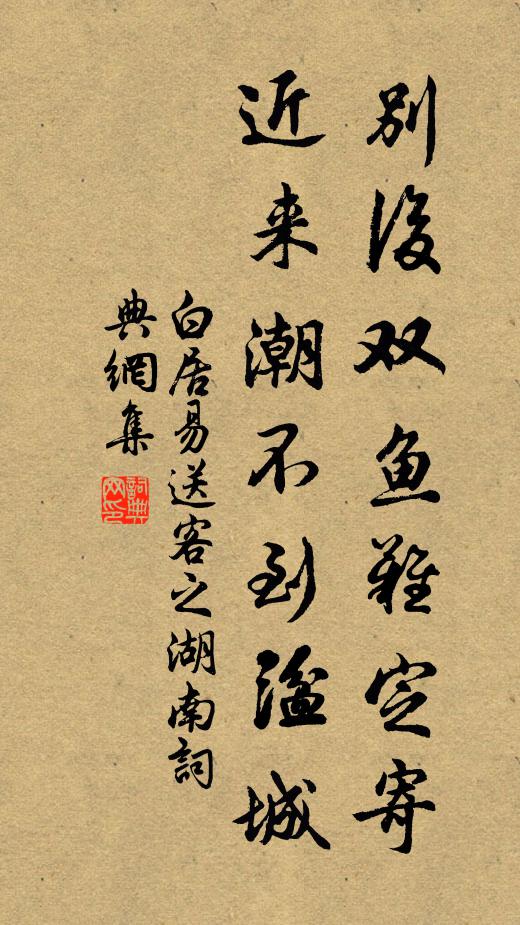 别後双鱼難定寄
近来潮不到湓城
白居易送客之湖南詞
典網集
詞典
网印